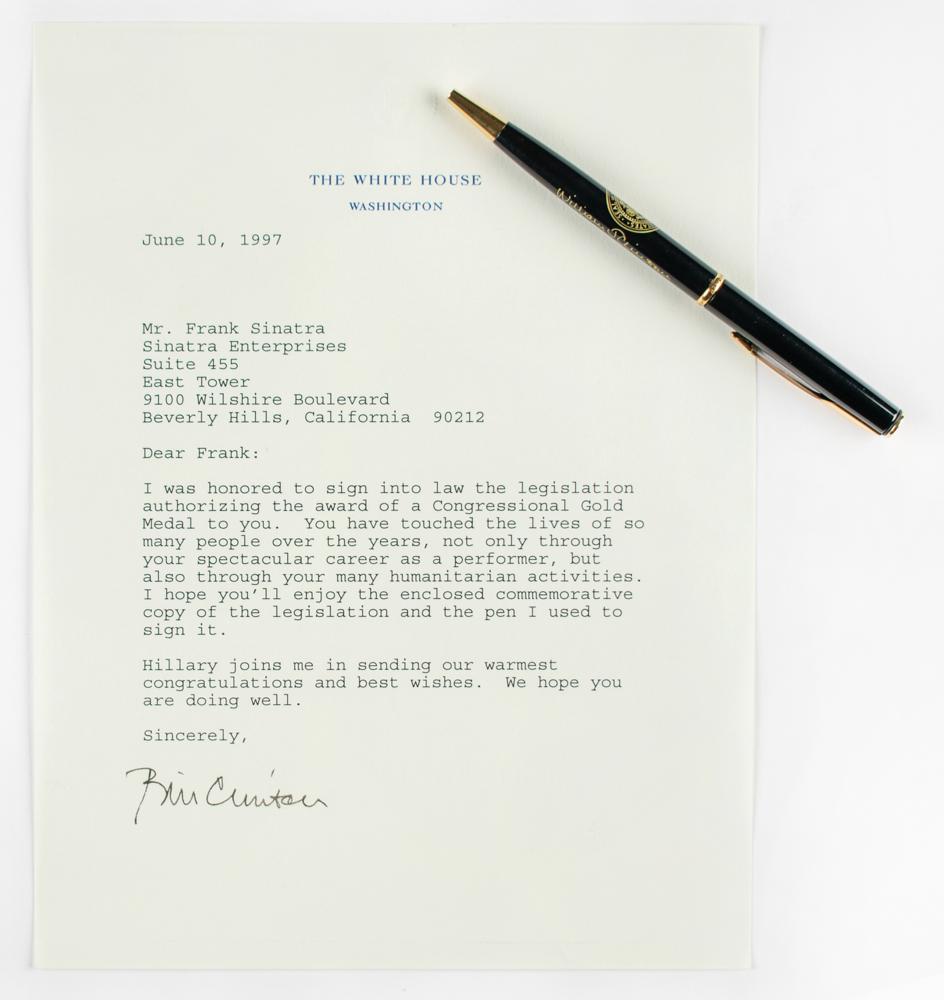 THE WHITE HOUSE
WASHINGTON
June 10, 1997
Mr. Frank Sinatra
Sinatra Enterprises
Suite 455
East Tower
9100 Wilshire Boulevard
Beverly Hills, California  90212
Dear Frank:
I was honored to sign into law the legislation
authorizing the award of a Congressional Gold
Medal to you.  You have touched the lives of so
many people over the years, not only through
your spectacular career as a performer, but
also through your many humanitarian activities.
I hope you'll enjoy the enclosed commemorative
copy of the legislation and the pen I used to
sign it.
Hillary joins me in sending our warmest
congratulations and best wishes.  We hope you
are doing well.
Sincerely,
Bill Clinton